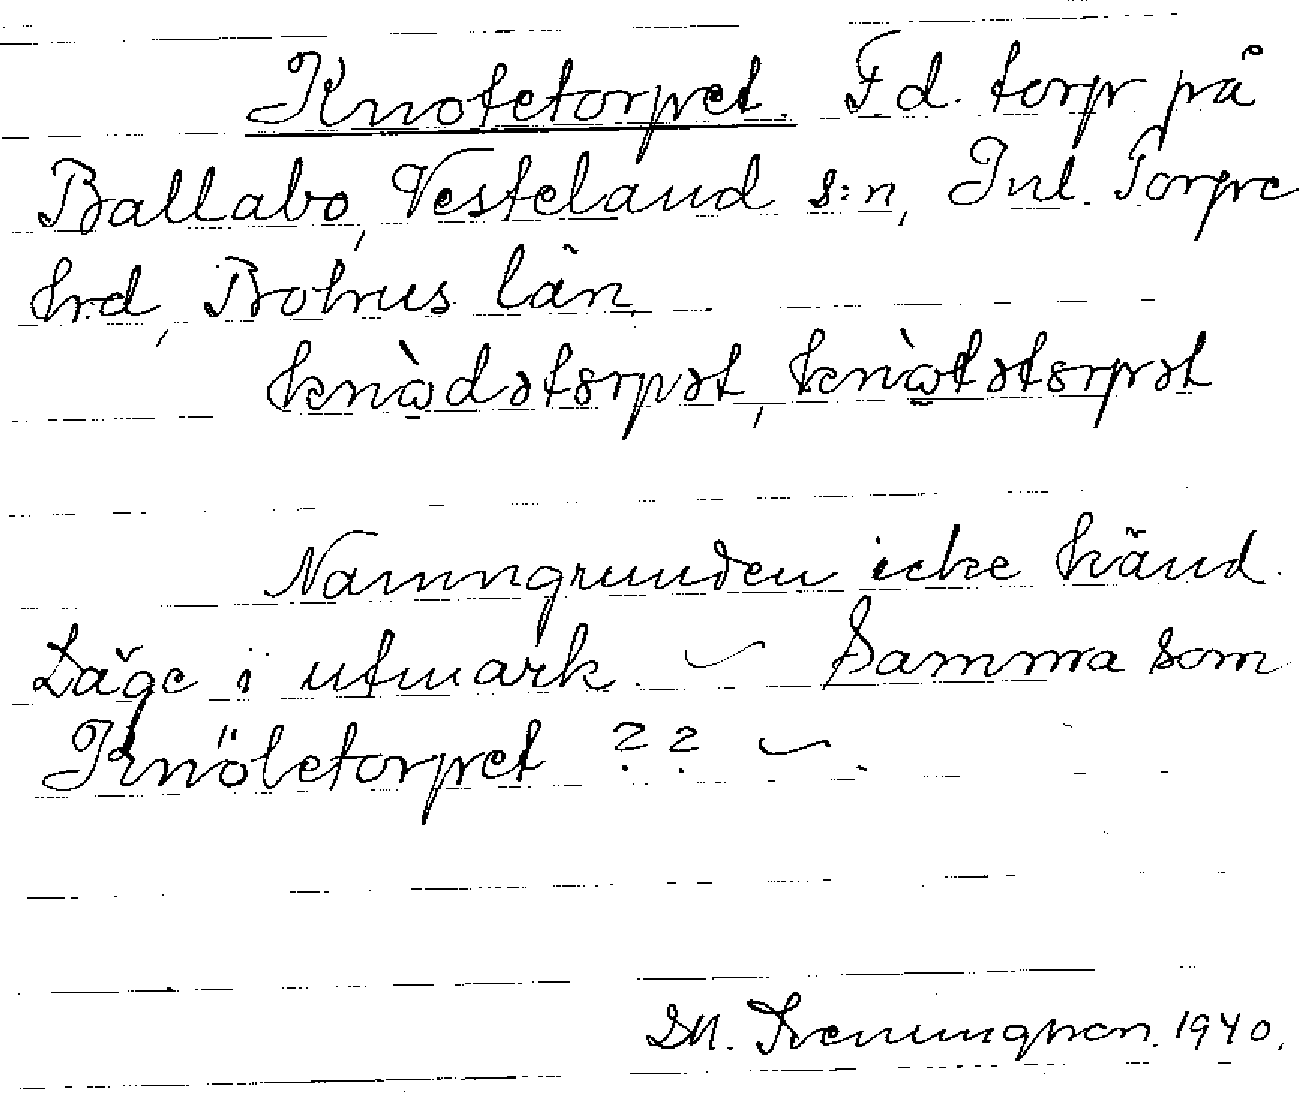 Knotetorpet. Fd. torp på
Ballabo, Vesteland s:n, Inl. Torpe
hrd, Bohus län.
knàdətərpət, knàtətərpət
Namngrunden icke känd.
Läge i utmark. – Samma som
Knöletorpet ?? –.
1940.